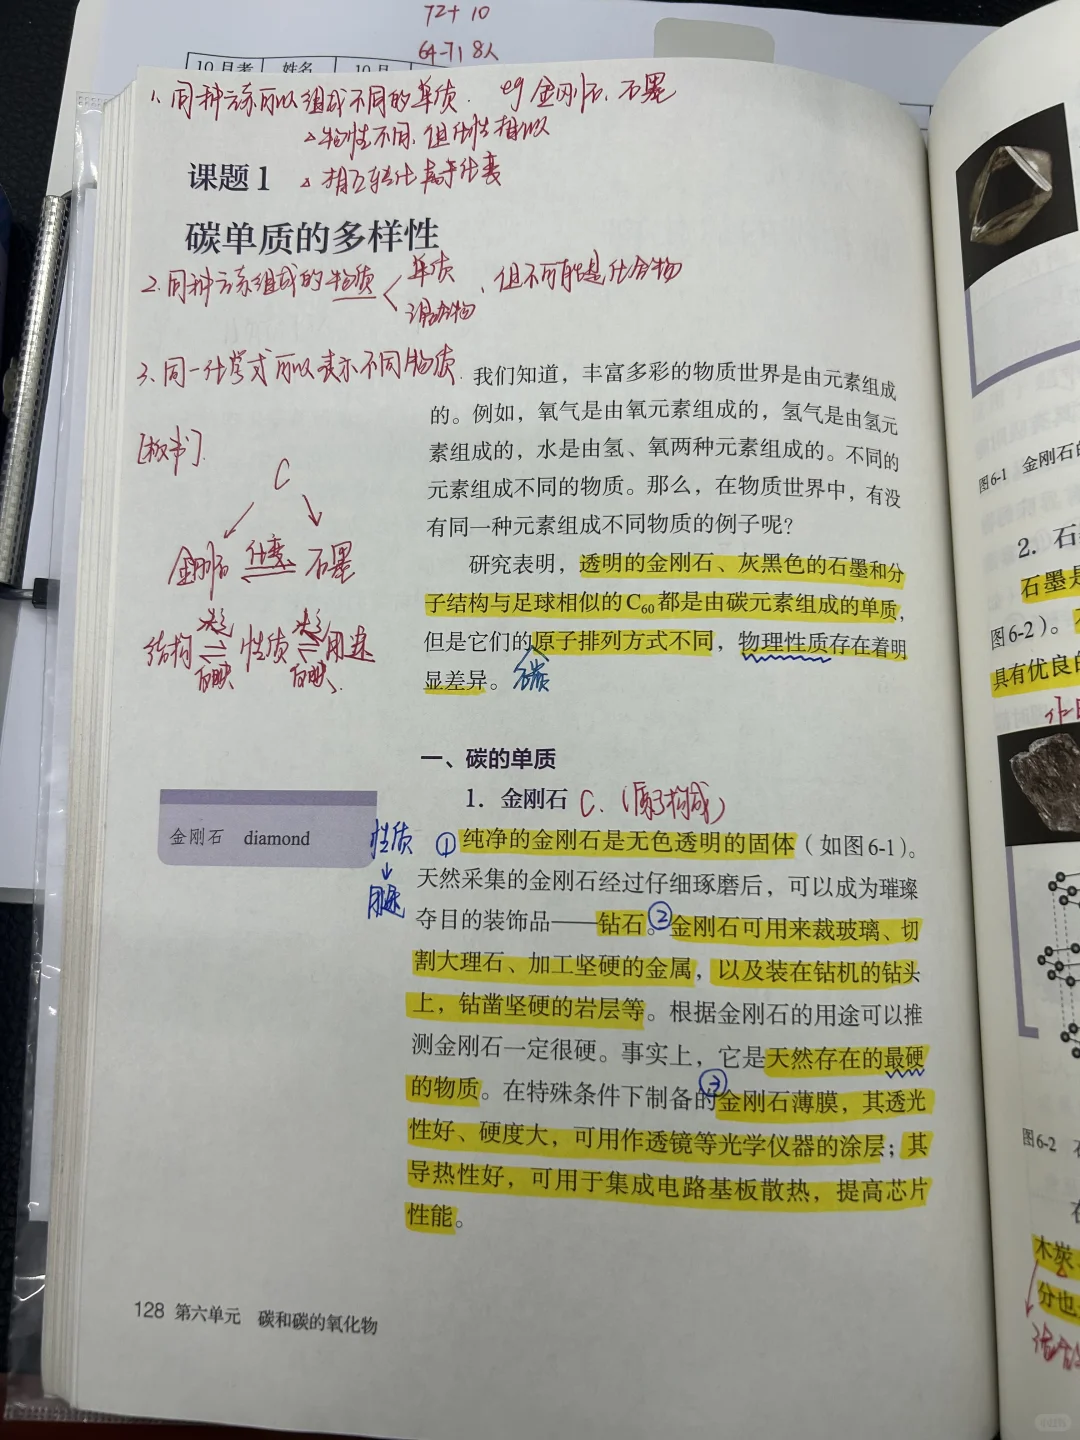 72+ 10
64-71 8人
10月考 姓名 10月
1、同种元素可以组成不同的单质. eg 金刚石、石墨
△物性不同,但化性相似
课题1 △相互转化属于化变
碳单质的多样性
2、同种元素组成的物质 单质 、但不可能是化合物
混合物
3、同一化学式可以表示不同物质.
我们知道，丰富多彩的物质世界是由元素组成
的。例如，氧气是由氧元素组成的，氢气是由氢元
素组成的，水是由氢、氧两种元素组成的。不同的
元素组成不同的物质。那么，在物质世界中，有没
有同一种元素组成不同物质的例子呢？
[板书].
C
金刚石 化变 石墨
结构 决定 性质 决定 用途
反映 反映
研究表明，透明的金刚石、灰黑色的石墨和分
子结构与足球相似的C₆₀都是由碳元素组成的单质，
但是它们的原子排列方式不同，物理性质存在着明
显差异。 碳
一、碳的单质
1. 金刚石 C.(原子构成)
金刚石 diamond
性质
↓
用途
①纯净的金刚石是无色透明的固体（如图6-1）。
天然采集的金刚石经过仔细琢磨后，可以成为璀璨
夺目的装饰品——钻石。②金刚石可用来裁玻璃、切
割大理石、加工坚硬的金属，以及装在钻机的钻头
上，钻凿坚硬的岩层等。根据金刚石的用途可以推
测金刚石一定很硬。事实上，它是天然存在的最硬
的物质。在特殊条件下制备的③金刚石薄膜，其透光
性好、硬度大，可用作透镜等光学仪器的涂层；其
导热性好，可用于集成电路基板散热，提高芯片
性能。
128 第六单元 碳和碳的氧化物
图6-1 金刚石的
2. 石
石墨是
图6-2）。
具有优良的
图6-2 石
木炭
分也